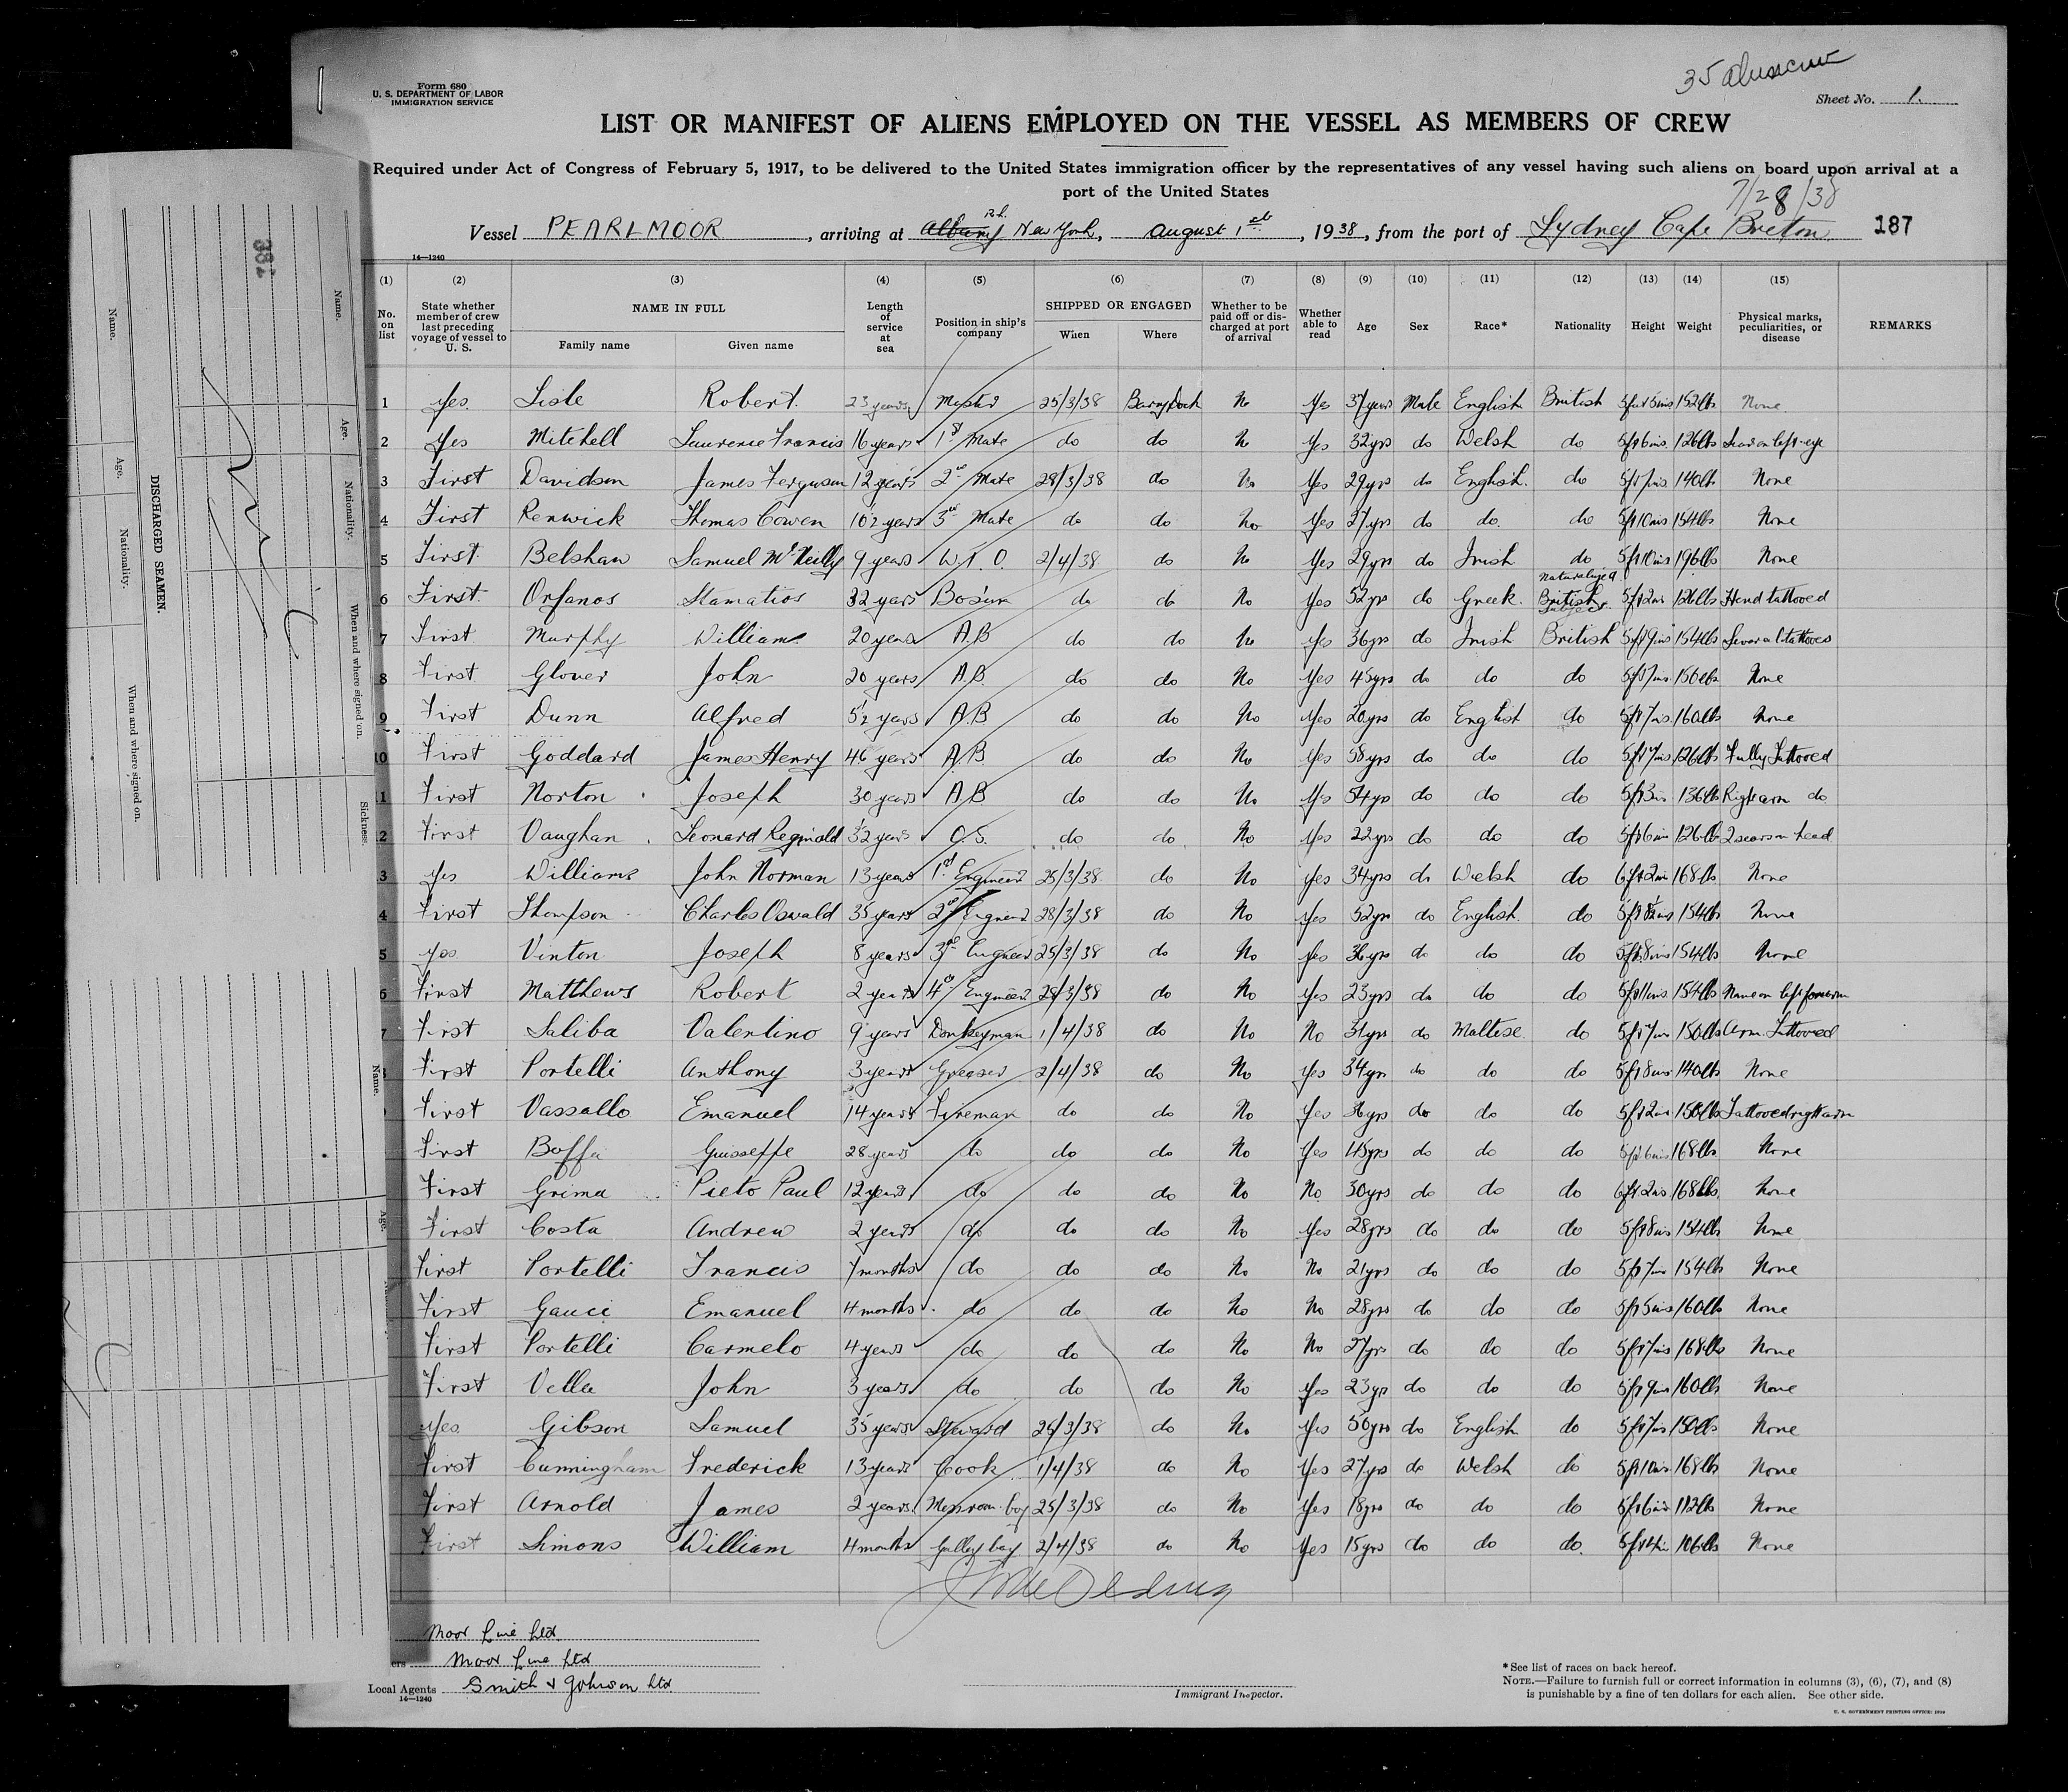 35 aliens crew
Form 680
U. S. DEPARTMENT OF LABOR
IMMIGRATION SERVICE
Sheet No. 1.
LIST OR MANIFEST OF ALIENS EMPLOYED ON THE VESSEL AS MEMBERS OF CREW
Required under Act of Congress of February 5, 1917, to be delivered to the United States immigration officer by the representatives of any vessel having such aliens on board upon arrival at a
port of the United States
7/28/38
Vessel PEARLMOOR, arriving at Albany New York, August 1st, 1938, from the port of Sydney Cape Breton 187
14—1240
(1) (2) (3) (4) (5) (6) (7) (8) (9) (10) (11) (12) (13) (14) (15)
No. on list State whether member of crew last preceding voyage of vessel to U. S. NAME IN FULL Family name Given name Length of service at sea Position in ship's company SHIPPED OR ENGAGED When Where Whether to be paid off or discharged at port of arrival Whether able to read Age Sex Race* Nationality Height Weight Physical marks, peculiarities, or disease REMARKS
1 Yes Lisle Robert 23 years Master 25/3/38 Barry Dock No Yes 37 years Male English British 5ft 5ins 152lbs None
2 Yes Mitchell Laurence Francis 16 years 1st Mate do do No Yes 32yrs do Welsh do 5ft 6ins 126lbs Scar on left eye
3 First Davidson James Ferguson 12 years 2nd Mate 28/3/38 do No Yes 29yrs do English do 5ft 7ins 140lbs None
4 First Renwick Thomas Cowen 10½ years 3rd Mate do do No Yes 27yrs do do do 5ft 10ins 154lbs None
5 First Belshaw Samuel McNeilly 9 years W.T.O. 2/4/38 do No Yes 29yrs do Irish do 5ft 10ins 196lbs None
6 First Orfanos Stamatios 32 years Bosun do do No Yes 52yrs do Greek Naturalized British Subject 5ft 2ins 126lbs Hand tattooed
7 First Murphy William 20 years A.B do do No Yes 36yrs do Irish British 5ft 9ins 154lbs Several tattoos
8 First Glover John 20 years A.B do do No Yes 45yrs do do do 5ft 7ins 156lbs None
9 First Dunn Alfred 5½ years A.B do do No Yes 20yrs do English do 5ft 7ins 160lbs None
10 First Goddard James Henry 46 years A.B. do do No Yes 58yrs do do do 5ft 7ins 126lbs Fully Tattooed
1 First Norton Joseph 30 years A.B do do No Yes 54yrs do do do 5ft 3ins 136lbs Right arm do
2 First Vaughan Leonard Reginald 3½ years O.S. do do No Yes 22yrs do do do 5ft 6ins 126lb 2 scars on head
3 Yes Williams John Norman 13 years 1st Engineer 25/3/38 do No Yes 34yrs do Welsh do 6ft 2ins 168lbs None
4 First Thompson Charles Oswald 35 years 2nd Engineer 28/3/38 do No Yes 52yrs do English do 5ft 154lbs None
5 Yes Vinton Joseph 8 years 3rd Engineer 25/3/38 do No Yes 36yrs do do do 5ft 8ins 154lbs None
6 First Matthews Robert 2 years 4th Engineer 28/3/38 do No Yes 23yrs do do do 5ft 11ins 154lbs Name on left forearm
7 First Saliba Valentino 9 years Donkeyman 1/4/38 do No No 31yrs do Maltese do 5ft 7ins 150lbs Arm Tattooed
8 First Portelli Anthony 3 years Greaser 2/4/38 do No Yes 34yrs do do do 5ft 8ins 140lbs None
First Vassallo Emanuel 14 years Fireman do do No Yes 36yrs do do do 5ft 2ins 150lbs Tattooed right arm
First Boffa Guisseffe 28 years do do do No Yes 45yrs do do do 5ft 6ins 168lbs None
First Grima Pieto Paul 12 years do do do No No 30yrs do do do 6ft 2ins 168lbs None
First Costa Andrew 2 years do do do No Yes 28yrs do do do 5ft 8ins 154lbs None
First Portelli Francis 7 months do do do No No 21yrs do do do 5ft 7ins 154lbs None
First Gauci Emanuel 4 months do do do No No 28yrs do do do 5ft 5ins 160lbs None
First Portelli Carmelo 4 years do do do No No 27yrs do do do 5ft 7ins 168lbs None
First Vella John 3 years do do do No Yes 23yrs do do do 5ft 9ins 160lbs None
Yes Gibson Samuel 35 years Steward 25/3/38 do No Yes 50yrs do English do 5ft 7ins 150lbs None
First Cunningham Frederick 13 years Cook 1/4/38 do No Yes 27yrs do Welsh do 5ft 10ins 168lbs None
First Arnold James 2 years Messroom boy 25/3/38 do No Yes 18yrs do do do 5ft 6ins 112lbs None
First Simons William 4 months Galley boy 2/4/38 do No Yes 15yrs do do do 5ft 4in 106lbs None
Moor Line Ltd.
ers Moor Line Ltd
Local Agents Smith & Johnson Ltd.
14—1240
Immigrant Inspector.
*See list of races on back hereof.
NOTE.—Failure to furnish full or correct information in columns (3), (6), (7), and (8)
is punishable by a fine of ten dollars for each alien. See other side.
U. S. GOVERNMENT PRINTING OFFICE:
DISCHARGED SEAMEN.
Name. Age. Nationality. When and where signed on.
Name. Age. Nationality. When and where signed on. Sickness.
Name. Age.